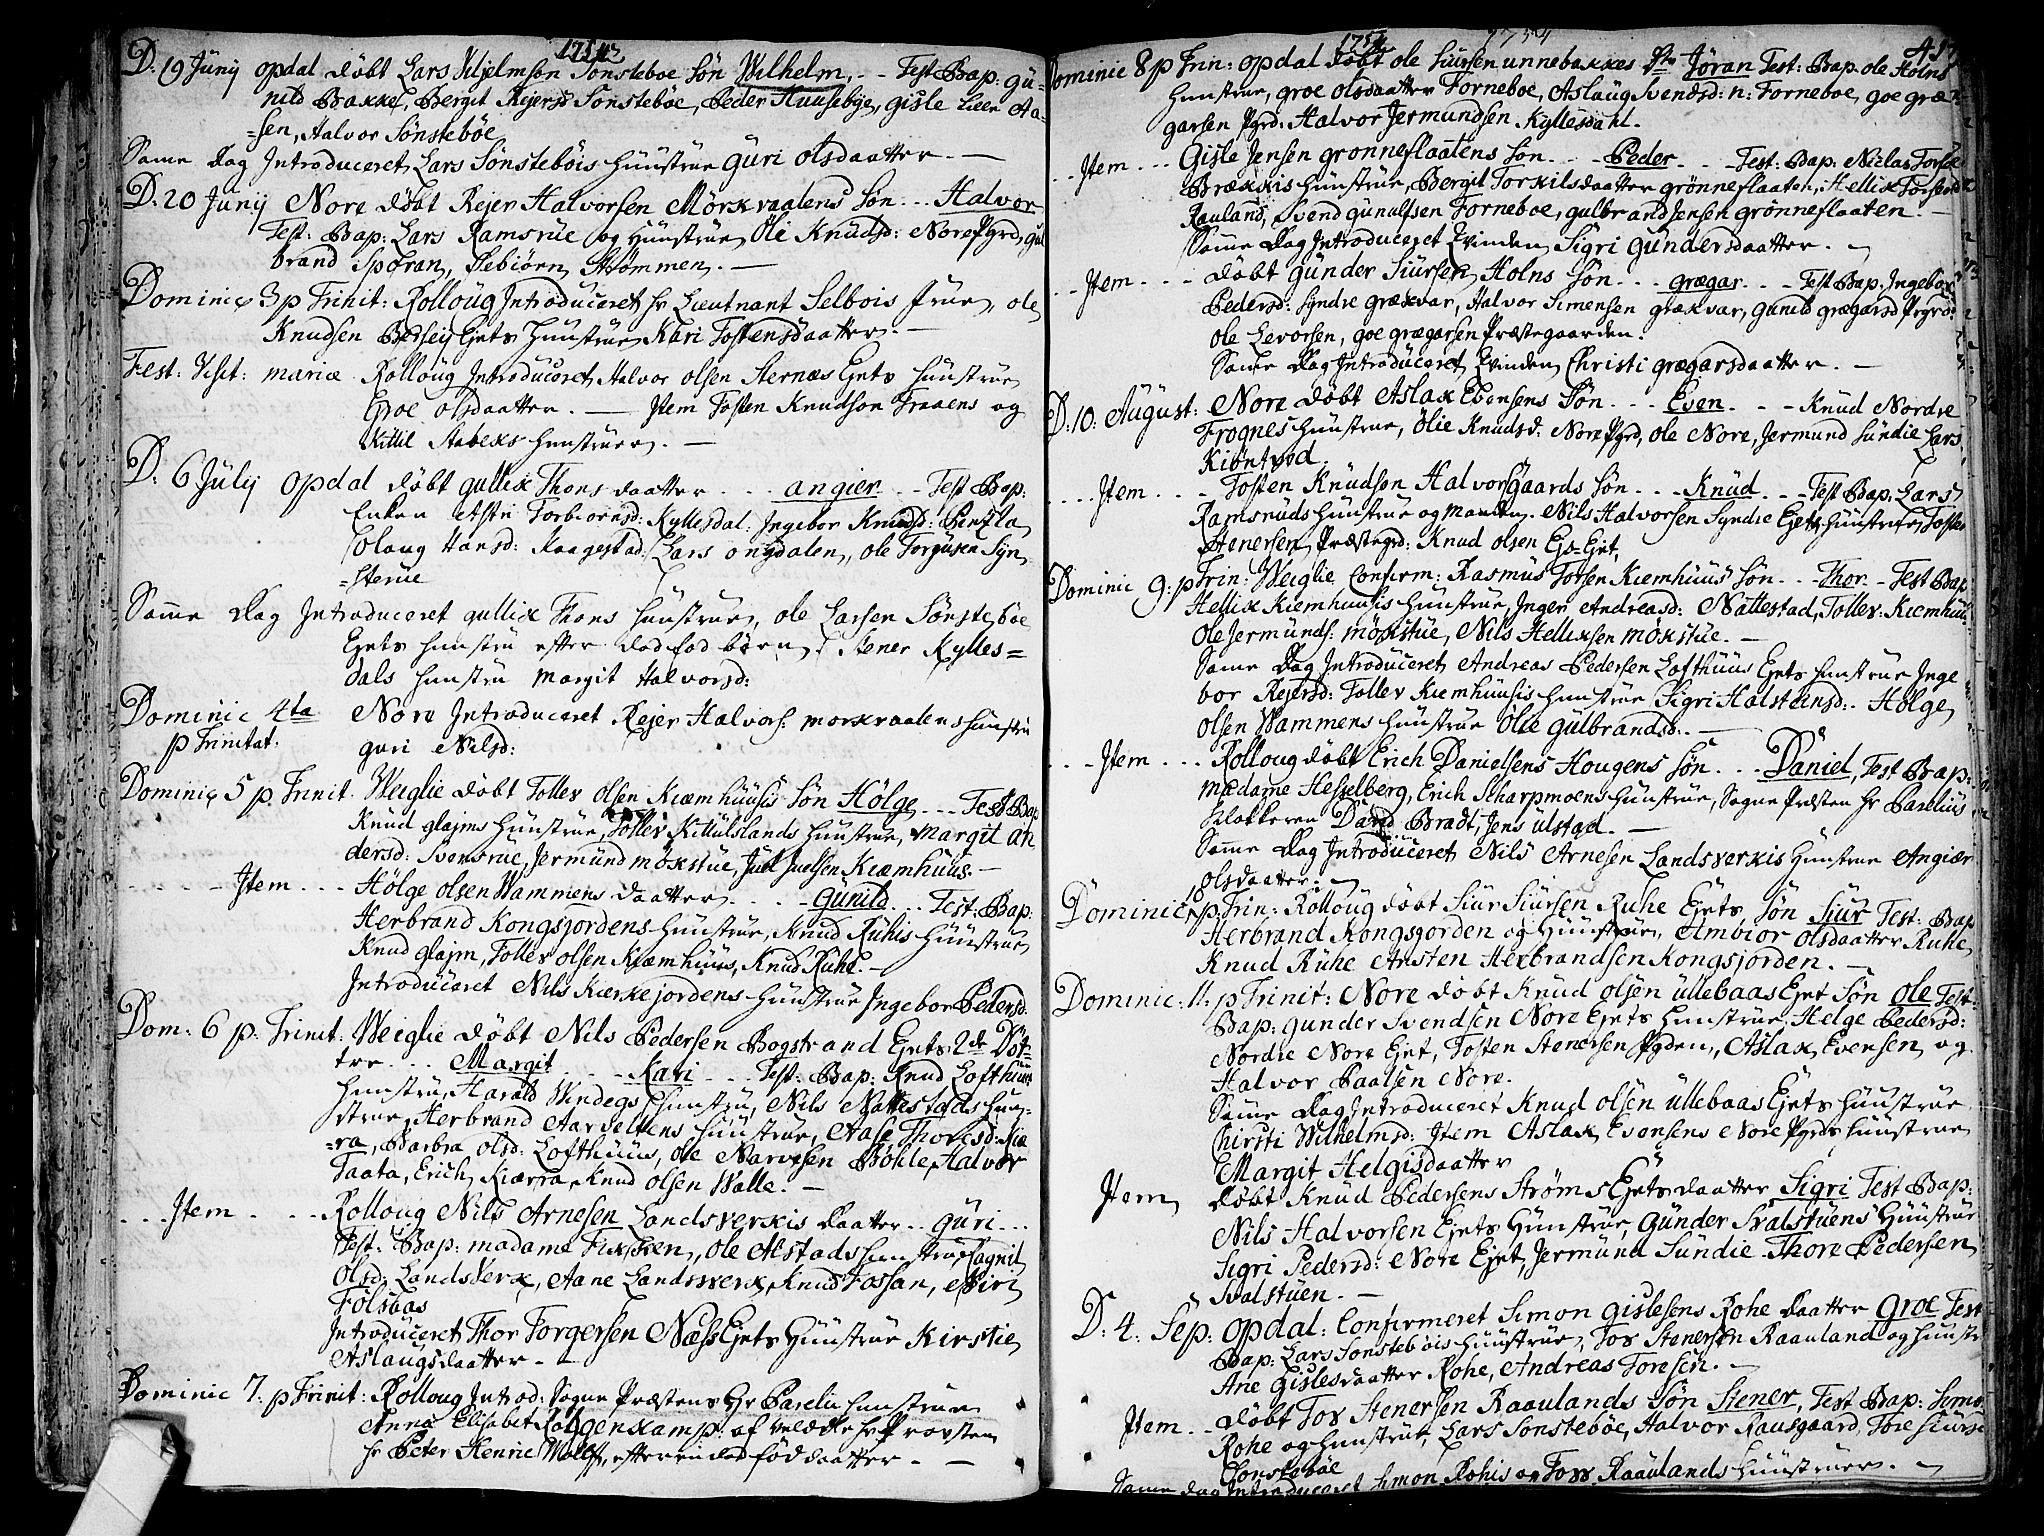 1754
D. 19 Junij opdal döbt Lars Wilhelmsøn Sønsteboe Søn Wilhelm, -- Test: Bap: Gu-
nild Bakke, Bergit Reiersd Sønstebøe, Peder Huusebye, Gisle Lien Aa-
=sen, Halvor Sønstebøe
Same Dag Introduceret Lars Sønstebøis Huustrue Guri Olsdaatter. —
D: 20 Junij Nore döbt Rejer Halvorsen Mörkvaalens Søn ... Halvor
Test: Bap: Lars Ramsrüe og Huustrue, Öli Knüdsd: Nore Pgrd, Gul
brand Sporan, Asbiörn Strömmen. —
Dominic 3 p Trinit: Rolloüg Introduceret Hr Lieutnant Selbois Frue, ole
Knudsen Eiets Huustrue Kari Tostensdaatter. —
Fest: Visit: mariæ Rolloug Introduceret Halvor olsen Sternæs Eiets Huustrue
Groe olsdaatter. — Item Tosten Knudsøn Traaens og
Kittil Stabeks Huustruer. —
D: 6 July opdal döbt gullik Thons daatter ... angier ... Test Bap:
Enken Astri Torbiörnsd: Kyllesdal, Ingebor Knudsd:
olaug Hansd: Kaagestad, Lars ongdalen, ole Torgusen Syn
=sterüe
Same Dag Introduceret gullik Thons Huustrue, ole Larsen Sønstebøe
Eiets Huustru efter dødfød børn, Stener Kylles=
dals Huustru Margit Halvorsd:
Dominic 4ta Nore Introduceret Rejer Halvors: morkvaalens Huustru
p Trinitat: guri Nilsd:
Dominic 5 p. Trinit. Weiglie döbt Tollev olsen Kiæmhuusis Søn Hölge ... Test Bap
Knud glaims Huustrue, Tollev Kittilslands Huustrue, Margit An
dersd: Svensrüe, Jermund mökstüe, Juel Juelsen Kiæmhuus. —
Item ... Hölge olsen Wammens daatter ... Gunild ... Test: Bap:
Herbrand Kongsjordens Huustrue, Knud Ruhis Huustrue
Knud glaim, Tollev olsen Kiæmhuus, Knud Ruhe. —
Introduceret Nils Kierkejordens Huustrue Ingebor Pedersd.
Dom: 6 p: Trinit: Weiglie döbt Nils Pedersen Bogstrand Eiets 2de Döt=
tre ... Margit ... Kari ... Test: Bap: Knud Lofthuus
Huustru, Harald Windegs Huustru, Nils Nattestads Huu-
strue, Herbrand Aarseltens Huustrue, Aase Thoresd: Kiæ
=ra, Barbra olsd: Lofthuus, ole Narvesen Böhle, Halvor
Taata, Erich Kiærra, Knud olsen Walle. —
Item Rolloug Nils Arnesen Landsverkis daatter ... Guri ...
Test: Bap: madame, ole Alstads Huustrue, Ragnil
Olsd: Landsverk, Aane Landsverk, Knud Fossan, Siri
Fölsbas
Introduceret Thor Torgersen Næss Eiets Huustrue Kirstie
Aslaugsdaatter. —
Dominic 7: p Trinit: Rolloug Introd: Sogne Præstens Hr Parelii Huustrue
Anna Elisabet Roggenkamp af velædle Hr Provsten
Hr Peter Henric, efter en dødfød daatter. —
1754 1754
Dominic 8 p Trin: opdal döbt ole Siursen unnebakkes Jöran Test: Bap. ole Holns
Huustrue, groe olsdaatter Torneboe, Aslaug Svendsd: n: Torneboe, goe græ
garsen Pgrd: Halvor Jermundsen Kyllesdahl.
Item ... Gisle Jensen gronneflaatens søn ... Peder ... Test: Bap: Niclas
Brekkis Huustrue, Bergit Torkilsdaatter grønneflaaten, Hellik Torsens
Rauland, Svend gunulfsen Torneboe, gulbrand Jensen grönneflaaten. —
Same Dag Introduceret Qvinden Sigri Gundersdaatter. —
Item ... döbt Günder Siürsen Holns Søn ... grægar ... Test Bap: Ingebor
Pedersd: Syndre grækvar, Halvor Simensen grækvar, gunild grægarsd Prgrd:
ole Levorsen, goe grægarsen Præstegaarden.
Same Dag Introduceret Qvinden Christi grægarsdaatter. —
D: 10. August: Nore döbt Aslak Evensens Søn ... Even ... Knud Nordre
Frognes Huustrue, Ölie Knudsd. Nore Pgrd, ole Nore, Jermund Sundie Lars
Kiöntved.
Item ... Tosten Knüdsen Halvorsgaards Søn ... Knüd ... Test Bap: Lars
Ramsruds Huustrue og, Nils Halvorsen Syndre Eiets Huustrue, Tosten
Stenersen Præstegrd: Knud olsen Eiet.
Dominic 9: p Trin: Weiglie Confirm: Rasmus Torsen Kiemhuus' Søn ... Thor - Test Bap
Hellik Kiemhuusis Huustrue, Inger Andreasd: Nattestad, Tollev: Kiemhuus
Ole Jermunds: mökstüe, Nils Hellixsen mökstüe. —
Same Dag Introduceret Andreas Pedersen Lofthuus Eiets Huustrue Inge
bor Rejersd: Tollev Kiemhuusis Huustrue Sigri Halsteinsd: Hölge
olsen Wammens Huustrue Ölie Gülbrandsd: —
Item ... Rolloug döbt Erich Danielsens Hougens Søn ... Daniel, Test Bap:
madame Hesselberg, Erich Skarpmoens Huustrue, Sogne Præsten Hr Parelius
Klokkeren David Bradt, Jens ulstad. —
Same Dag Introduceret Nils Arnesen Landsverkis Huustrue Angier
olsdaatter. —
Dominic 10 p. Trin: Rolloug döbt Siur Siursen Ruhe Eiets Søn Siur Test: Bap
Herbrand Kongsgorden og Huustrue, Ambior olsdaatter Ruhe,
Knud Rühe Aristen Herbrandsen Kongsjorden. —
Dominic: 11. p Trinit: Nore döbt Knud olsen üllebaas Eiet Søn Ole Test:
Bap: gunder Svendsen Nore Eiets Huustrue, Helge Pedersd:
Nordre Nore Eiet, Tosten Stenersen Pgden, Aslak Evensen og
Halvor Paalsen Nore.
Same Dag Introduceret Knud olsen üllebaas Eiets Huustrue
Chirsti Wilhelmsd: Item Aslak Evensens Nore Pgrds Huustrue
Margit Helgisdaatter
Item döbt Knud Pedersens Ströms Eiets daatter Sigri Test Bap:
Nils Halvorsen Eiets Huustrue, Günder Svalstüens Huustrue
Sigri Pedersd: Nore Eiet, Jermund Sundie Thore Pedersen
Svalstüen. —
D: 4. Sep: opdal: Confirmeret Simon Gislesens Rohe daatter Groe Test
Bap: Lars Sønstebøis Huustrue, Tov Stenersen Raauland og Huustr
Ane Gislesdaatter Rohe, Andreas Toresen. —
Item .. döbt Tov Stenersen Raaulands Søn Stener, Test Bap: Simo
Rohe og Huustrue, Lars Sønstebøe, Halvor Rausgaard, Tore Siurse
Sønstebøe
Same dag Introduceret Simon Rohis og Tovs Raaulands Huustruer. —